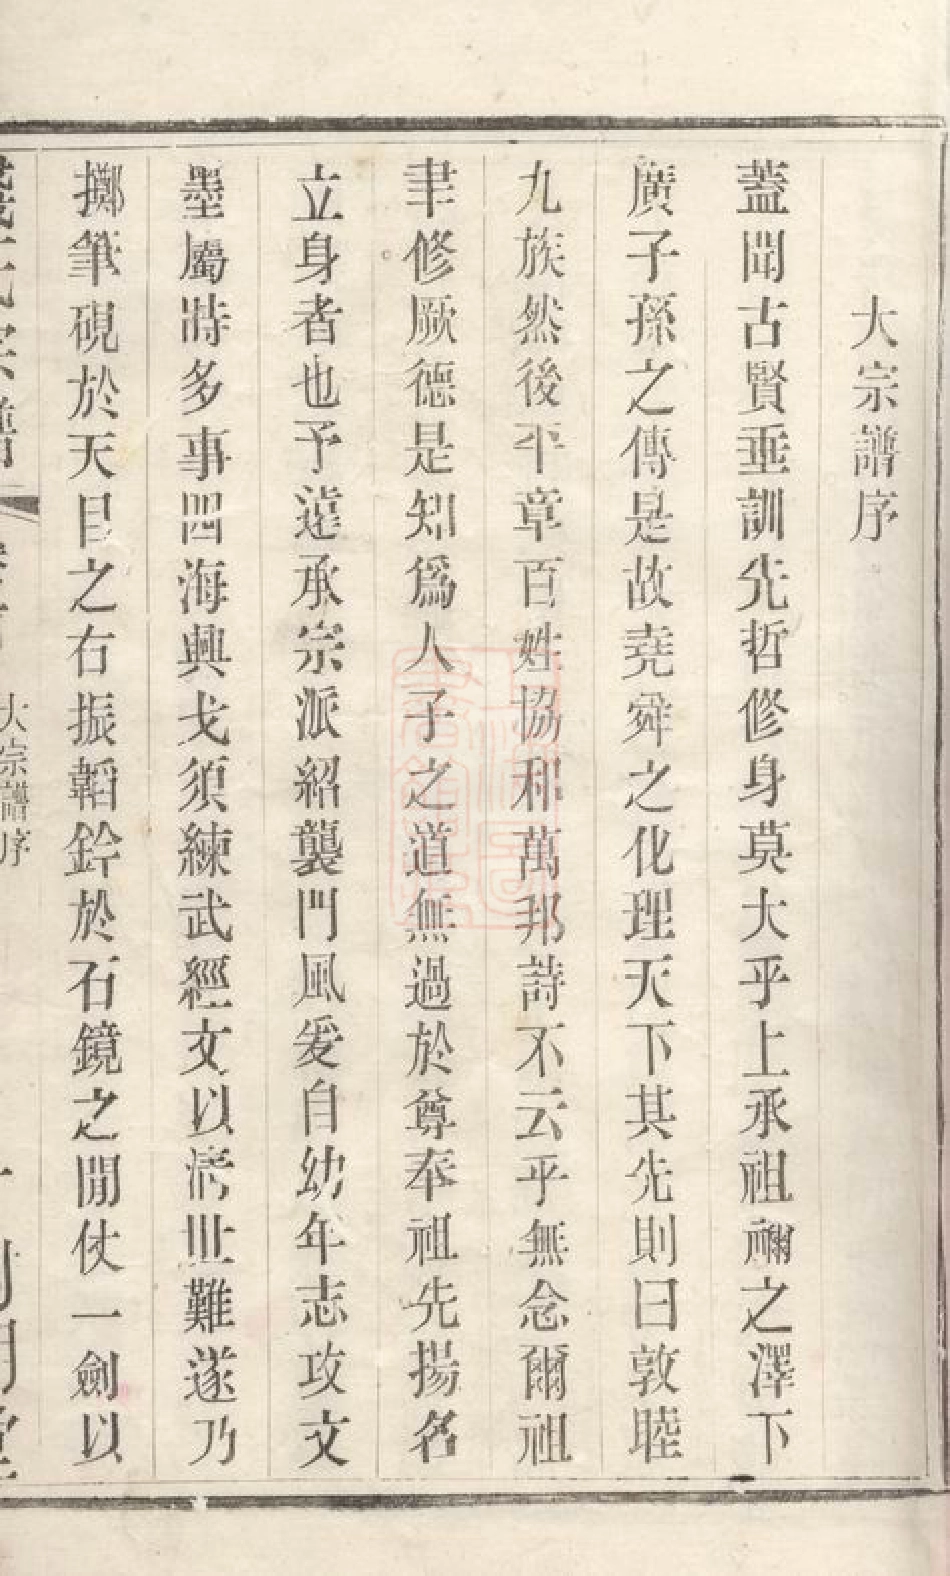 大宗譜序
蓋聞古賢垂訓先哲修身莫大乎上承祖禰之澤下
廣子孫之傳是故堯舜之化理天下其先則曰敦睦
九族然後平章百姓協和萬邦詩不云乎無念爾祖
聿修厥德是知爲人子之道無過於尊奉祖先揚名
立身者也予遠承宗派紹襲門風爰自幼年志攻文
墨屬時多事四海興戈須練武經文以濟世難遂乃
擲筆硯於天目之右振韜鈐於石鏡之間仗一劍以
大宗譜序